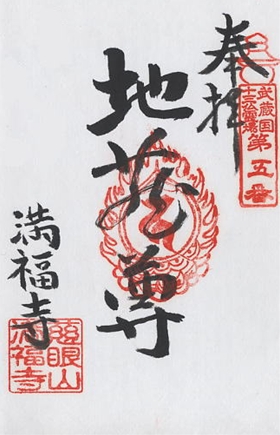 奉拝
武蔵国
十三仏霊場
第五番
地蔵尊
満福寺
慈眼山
満福寺